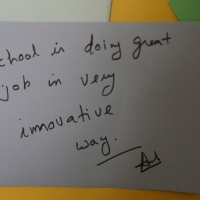 chool is doing great
job in very
innovative
way.